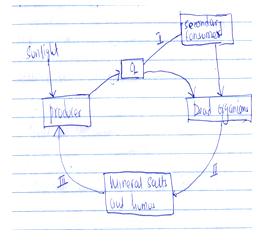 I
Secondary
Consumer
Sunlight
Q
Producer
Dead Organisms
III
II
Mineral Salts
and humus